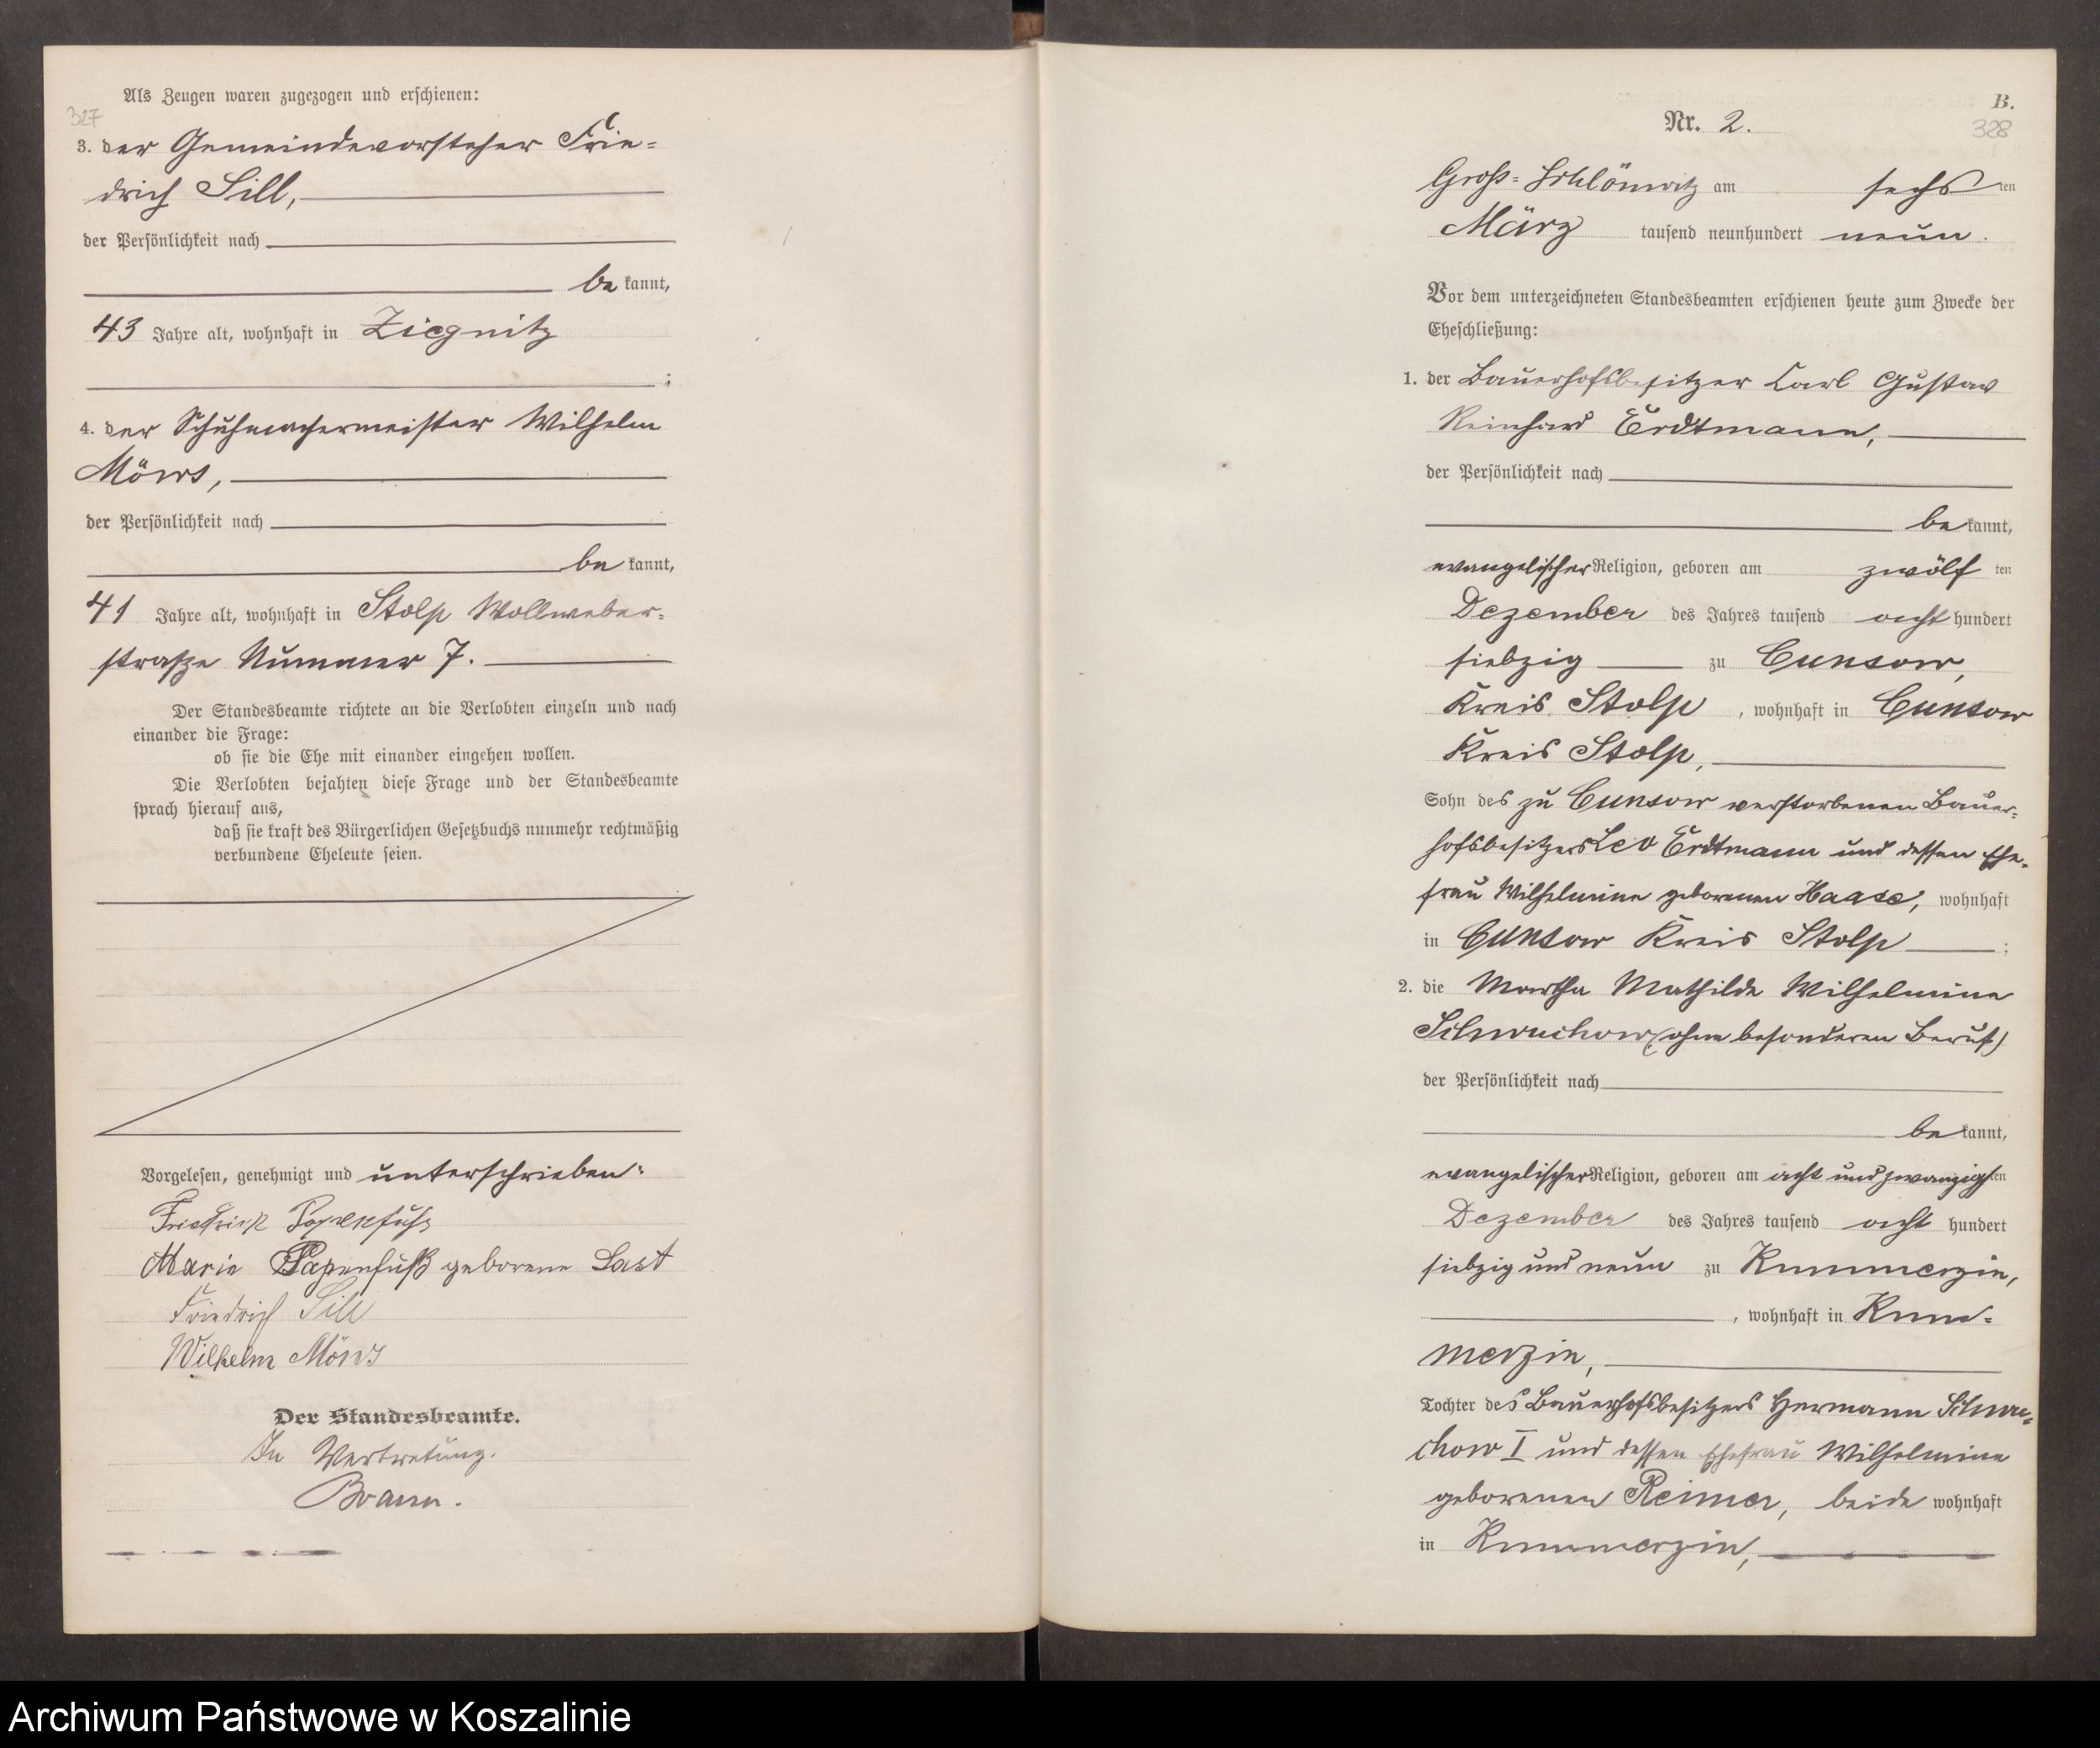 Als Zeugen waren zugezogen und erschienen:
327
3. der Gemeindevorsteher Frie=
drich Sill,
der Persönlichkeit nach
be kannt,
43 Jahre alt, wohnhaft in Ziegnitz
;
4. der Schuhmachermeister Wilhelm
Möws,
der Persönlichkeit nach
be kannt,
41 Jahre alt, wohnhaft in Stolp Wollweber=
straße Nummer 7.
Der Standesbeamte richtete an die Verlobten einzeln und nach
einander die Frage:
ob sie die Ehe mit einander eingehen wollen.
Die Verlobten bejahten diese Frage und der Standesbeamte
sprach hierauf aus,
daß sie kraft des Bürgerlichen Gesetzbuchs nunmehr rechtmäßig
verbundene Eheleute seien.
Vorgelesen, genehmigt und unterschrieben:
Friedrich Papenfuß
Marie Papenfuß geborene Last
Friedrich Sill
Wilhelm Möws
Der Standesbeamte.
In Vertretung.
B.
Nr. 2.
328
Groß=Schlönwitz am sechs ten
März tausend neunhundert neun.
Vor dem unterzeichneten Standesbeamten erschienen heute zum Zwecke der
Eheschließung:
1. der Bauerhofsbesitzer Carl Gustav
Reinhard Erdtmann,
der Persönlichkeit nach
be kannt,
evangelischer Religion, geboren am zwölf ten
Dezember des Jahres tausend acht hundert
siebzig zu Cunsow,
Kreis Stolp, wohnhaft in Cunsow
Kreis Stolp,
Sohn des zu Cunsow verstorbenen Bauer=
hofsbesitzers Leo Erdtmann und dessen Ehe=
frau Wilhelmine geborenen Haase, wohnhaft
in Cunsow Kreis Stolp ;
2. die Martha Mathilde Wilhelmine
Schwuchow (ohne besonderen Beruf)
der Persönlichkeit nach
be kannt,
evangelischer Religion, geboren am acht und zwanzigsten
Dezember des Jahres tausend acht hundert
siebzig und neun zu Kummerzin,
, wohnhaft in Kum=
merzin,
Tochter des Bauerhofsbesitzers Hermann Schwu=
chow I und dessen Ehefrau Wilhelmine
geborenen Reimer, beide wohnhaft
in Kummerzin,
Archiwum Państwowe w Koszalinie